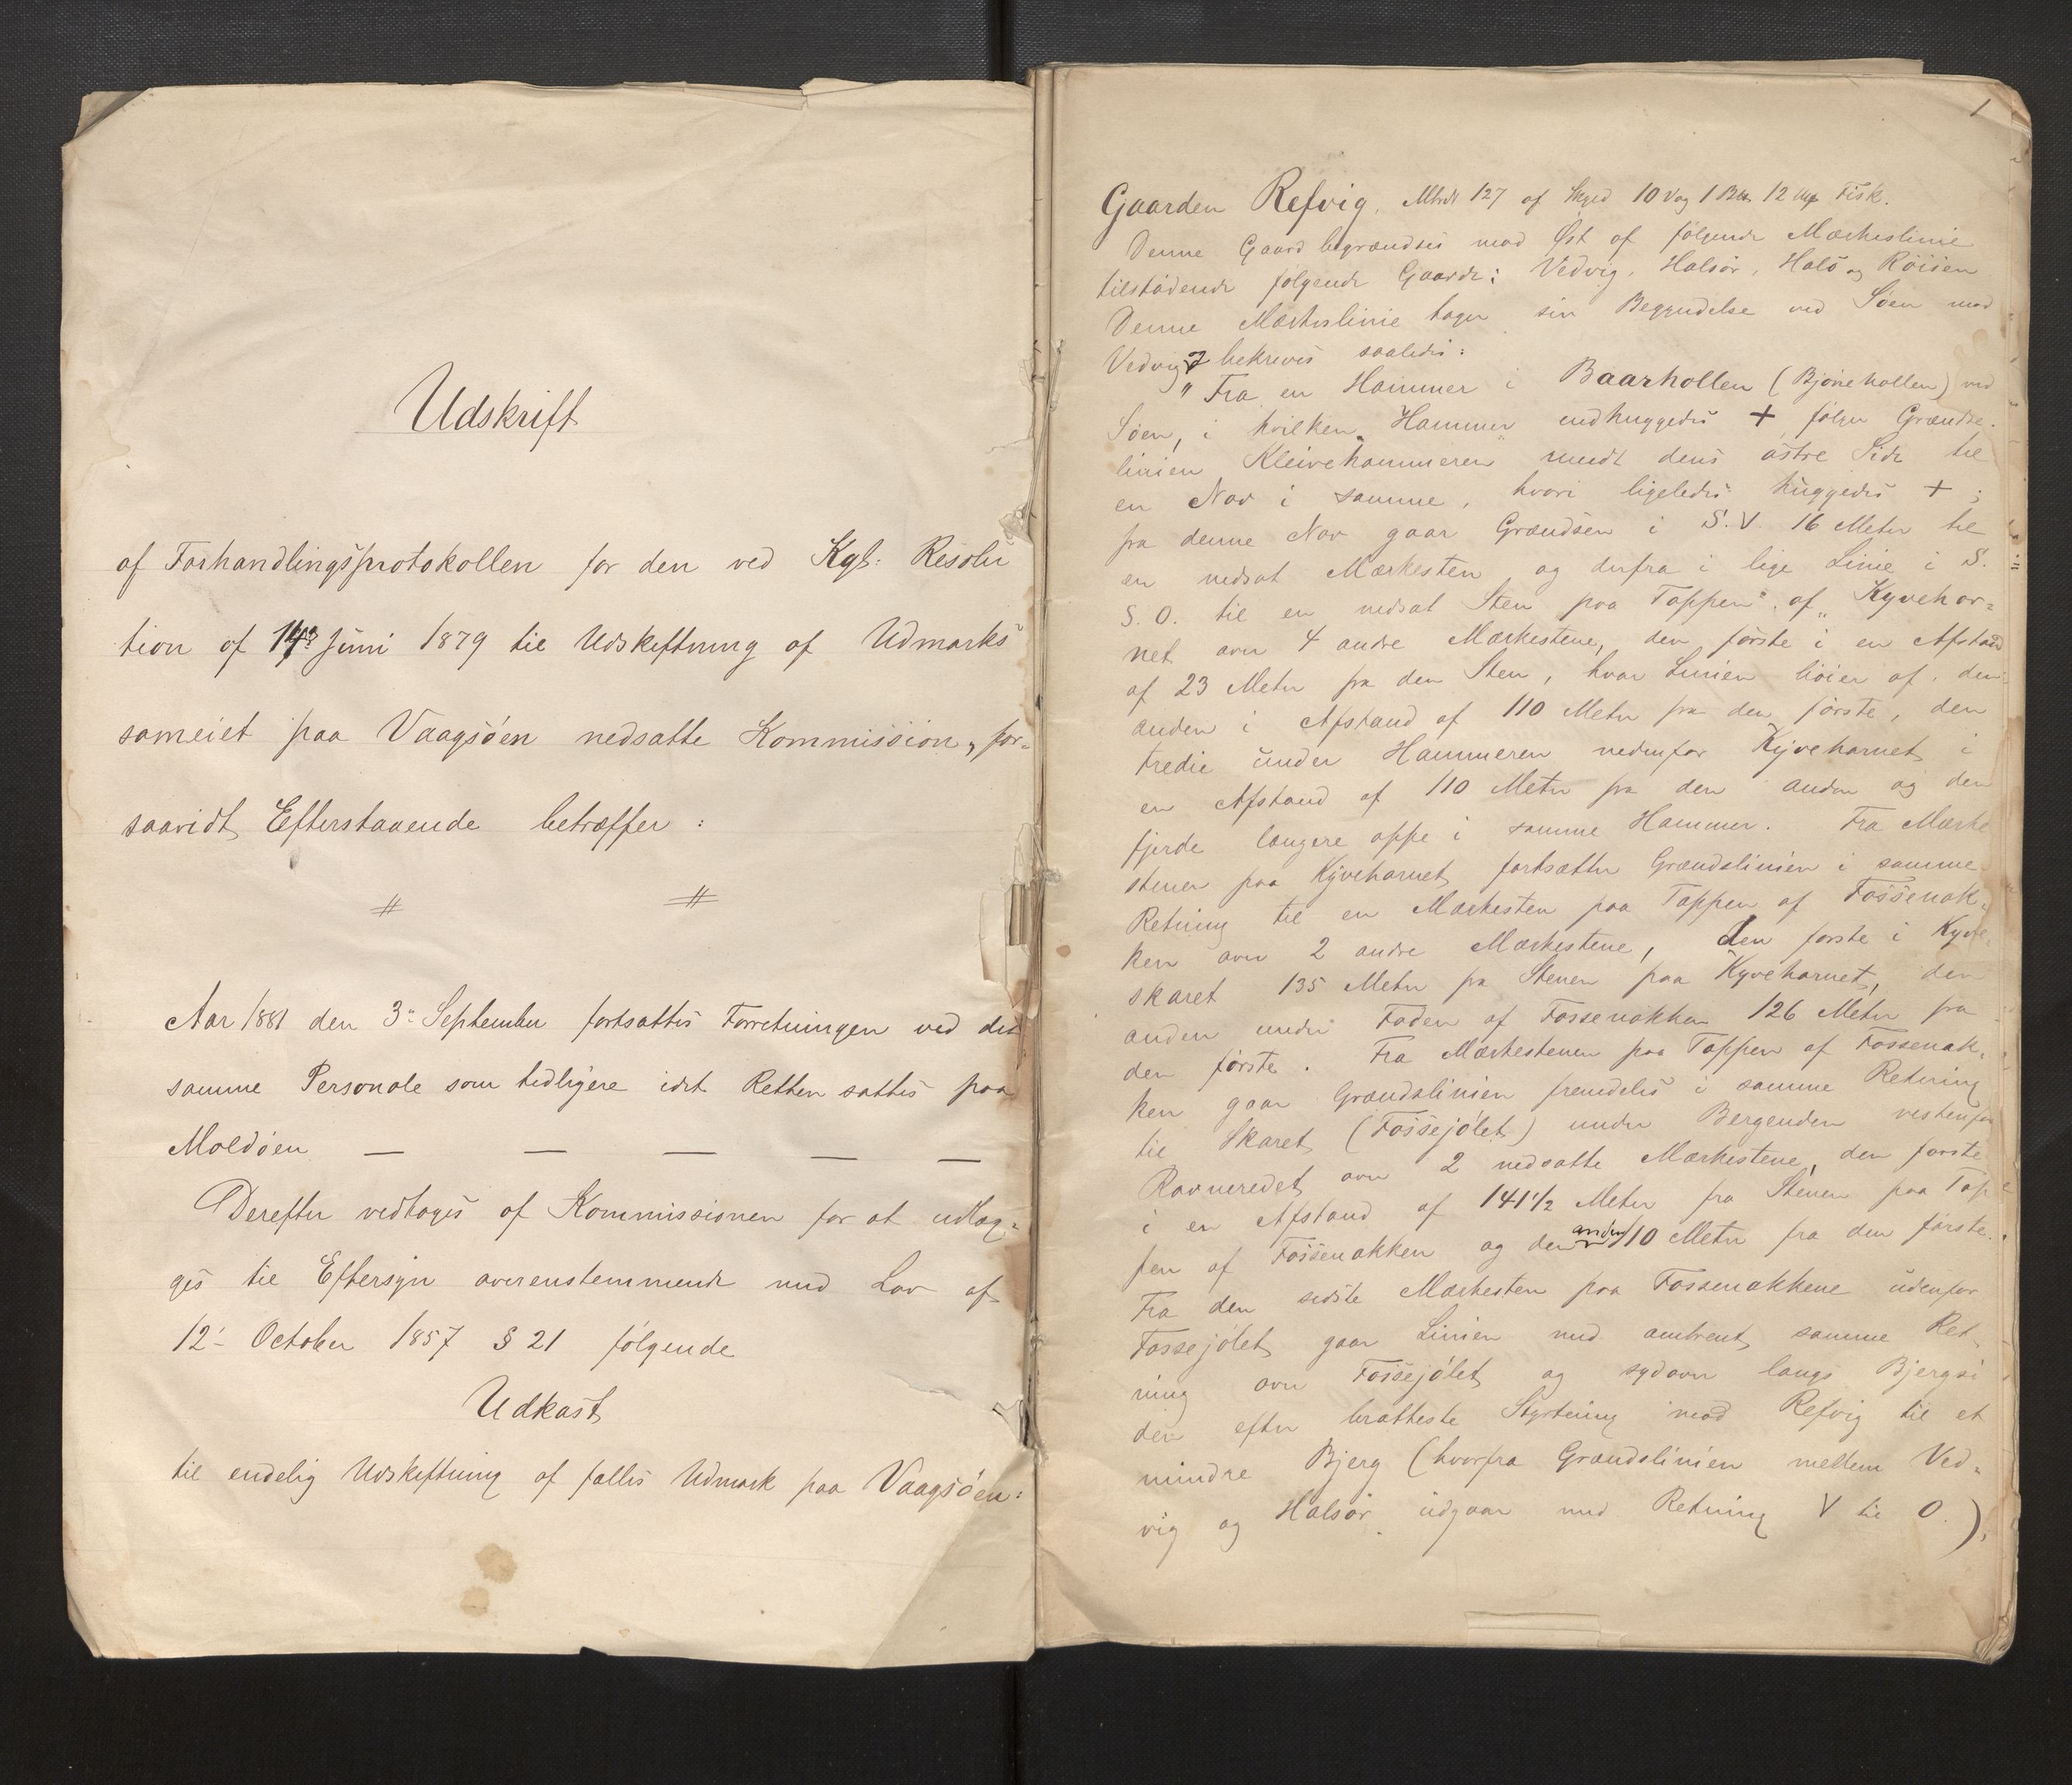 Udskrift
af Forhandlingsprotokollen for den ved Kgl: Resolu
tion af 14de Juni 1879 til Udskiftning af Udmarks
sameiet paa Vaagsöen nedsatte Kommission, for=
saavidt Efterstaaende betræffer :
# #
Aar 1881 den 3. September fortsattes Forretningen ved det
samme Personale som tidligere idet Retten sattes paa
Moldöen — — — — —
Derefter vedtoges af Kommissionen for at udlæg=
ges til Eftersyn overenstemmende med Lov af
12. October 1857 § 21 følgende
Udkast
til endelig Udskiftning af fælles Udmark paa Vaagsöen:
1
Gaarden Refvig, Mtrk 127 af Skyld 10 Vog 1 12 Fisk.
Denne Gaard begrændses mod Øst af følgende Mærkeslinie
tilstödende følgende Gaarde: Vedvig, Halsör, Halö og Röisen
Denne Mærkeslinie tager sin Begyndelse ved Søen mod
Vedvig & bekreves saaledes:
"Fra en Hammer i Baarhollen (Bjönehollen) ved
Söen, i hvilken Hammer indhuggedes + følger Grændse-
linien Kleivehammeren rundt dens östre Side til
en Nov i samme, hvori ligeledes huggedes + ;
fra denne Nov gaar Grændsen i S.V. 16 Meter til
en nedsat Mærkesten og derfra i lige Linie i S.
S.O. til en nedsat Sten paa Toppen af „Kyvehor=
net over 4 andre Mærkestene, den første i en Afstand
af 23 Meter fra den Sten, hvor Linien böier af, den
anden i Afstand af 110 Meter fra den første, den
tredie under Hammeren nedenfor Kyvehornet i
en Afstand af 110 Meter fra den anden og den
fjerde længere oppe i samme Hammer. Fra Mærke
stenen paa Kyvehornet fortsætter Grændselinien i samme
Retning til en Mærkesten paa Toppen af Fossenak=
ken over 2 andre Mærkestene, den første i Kyve
skaret 135 Meter fra Stenen paa Kyvehornet, den
anden under Foden af Fossenakken 126 Meter fra
den første. Fra Mærkestenen paa Toppen af Fossenak=
ken gaar Grændselinien fremdeles i samme Retning
til Skaret (Fossejölet) under Bergenden vestenfor
Ravneredet over 2 nedsatte Mærkestene, den første
i en Afstand af 141 1/2 Meter fra Stenen paa Top
pen af Fossenakken og den anden 110 Meter fra den første.
Fra den sidste Mærkesten paa Fossenakkene udenfor
Fossejölet gaar Linien med omtrent samme Ret
ning over Fossejölet og sydover langs Bjergsi
den efter bratteste Styrtning mod Refvig til et
mindre Bjerg (hvorfra Grændselinien mellem Ved=
vig og Halsör udgaar med Retning V til O.),